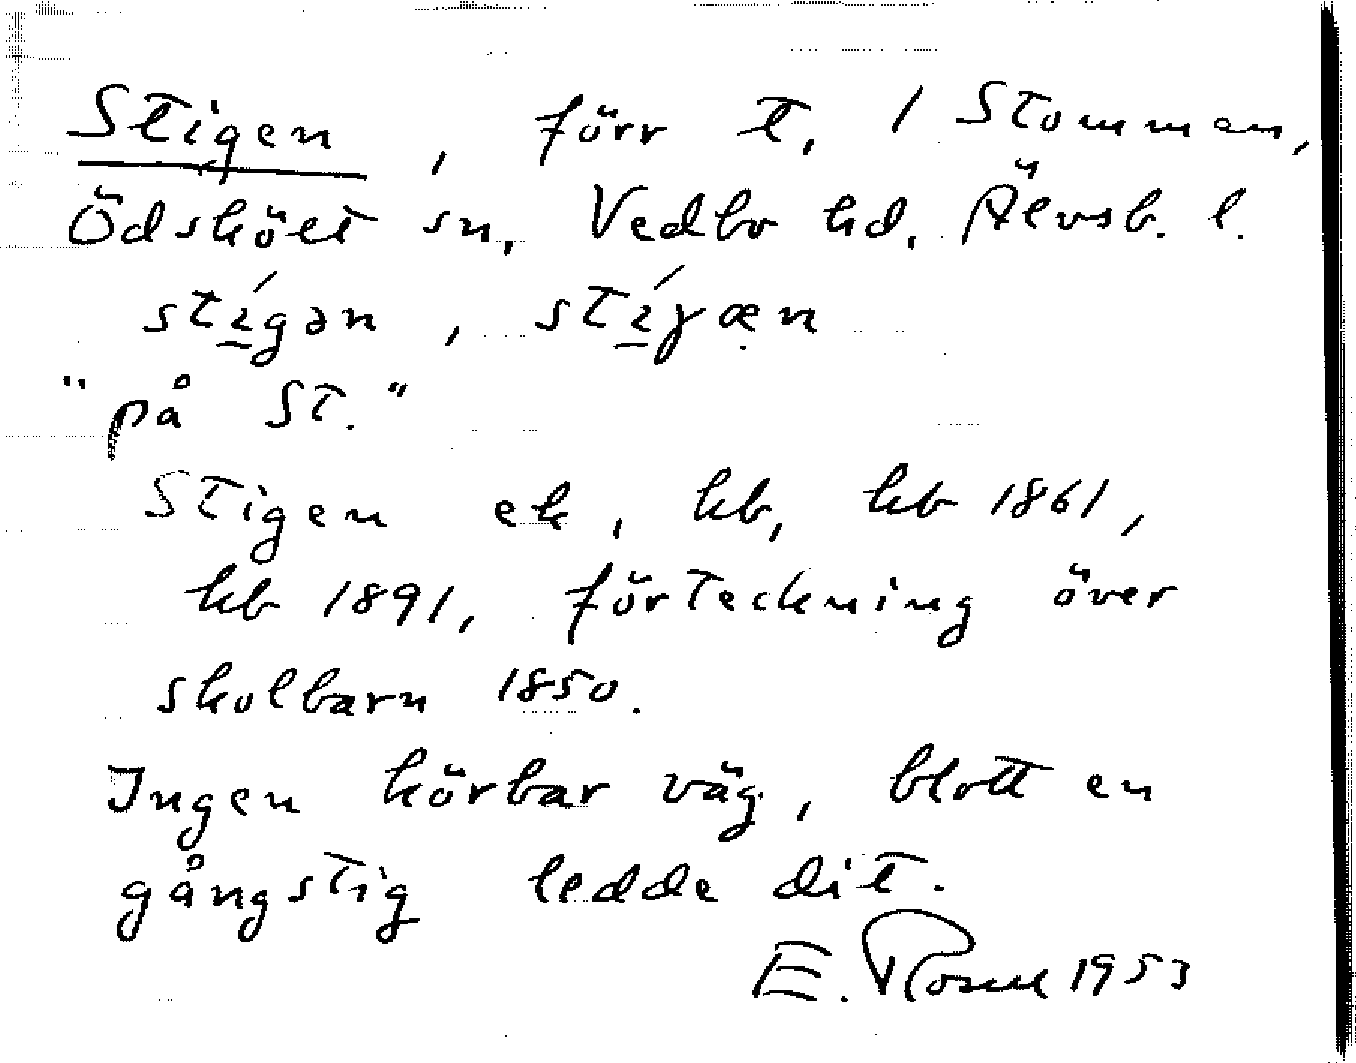 Stigen, förr t. / Stommen,
Ödskölt sn, Vedbo hd. Älvsb. l.
stígən, stíɣæ̣n
"på St."
Stigen ek, kb, kb 1861,
kb 1891, förteckning över
skolbarn 1850.
Ingen körbar väg, blott en
gångstig ledde dit.
E. Rosell 1953